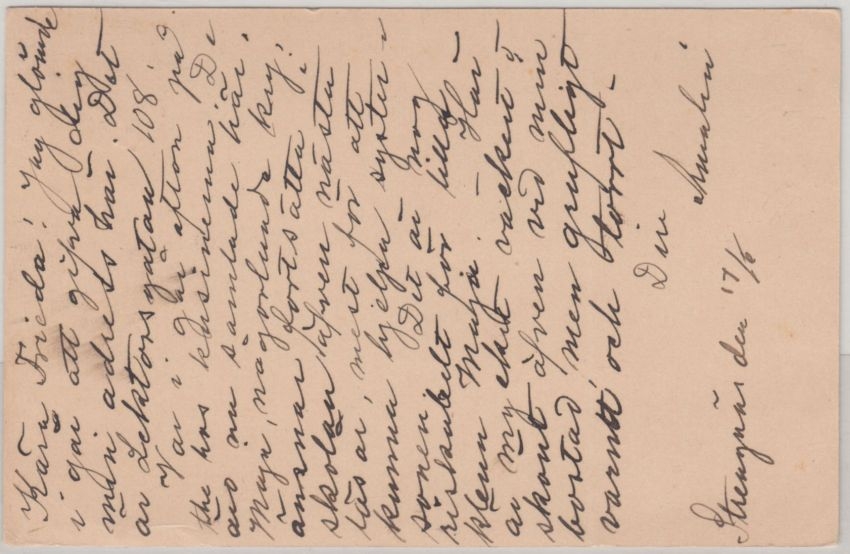 Kära Frida! Jag glömde
i går att gifva dig
min adress här. Det
är Lektorsgatan 108.
Var i går afton på
the hos kusinerna. De
äro nu samlade här.
Maja, någorlunda kry,
ämnar fortsätta i
skolan äfven nästa
läsår, mest för att
kunna hjelpa syster-
sonen. Det är nog
riskabelt för lilla
klena Maja. Här
är mycket vackert o
skönt äfven vid min
bostad, men grufligt
varmt och torrt.
Din
Amalia
Strengnäs den 17/6